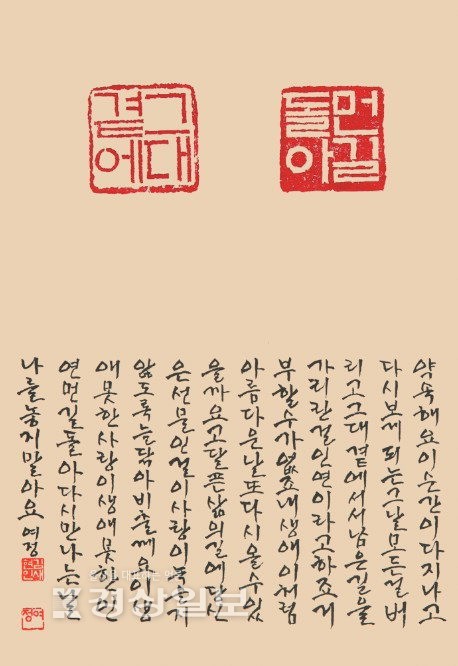 먼길
돌아
그대
곁에
약속해요이순간이다지나고
다시보게되는그날모든걸버
리고그대곁에서서남은길을
가리란걸인연이라고하죠거
부할수가없죠내생애이처럼
아름다운날또다시올수있
을까요고달픈삶의길에당신
은선물인걸이사랑이녹슬지
않도록늘닦아비출께요이생
애못한사랑이생애못한인
연먼길돌아다시만나는날
나를놓지말아요 여정
여정
경상일보